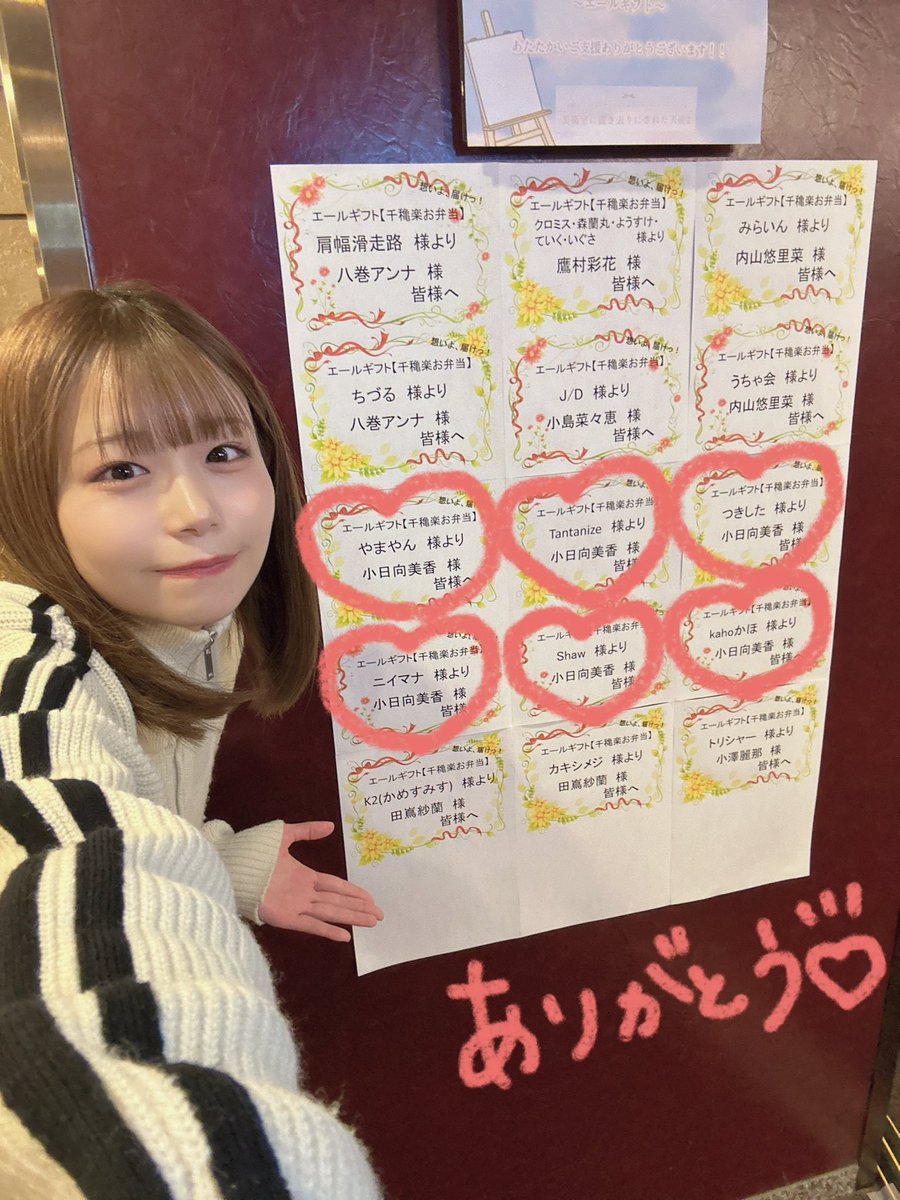 ～エールギフト～
あたたかいご支援ありがとうございます！！
美術室に置き去りにされた天使は
想いよ、届けっ！
エールギフト【千穐楽お弁当】
肩幅滑走路 様より
八巻アンナ 様
皆様へ
想いよ、届けっ！
エールギフト【千穐楽お弁当】
クロミス・森蘭丸・ようすけ・
ていく・いぐさ 様より
鷹村彩花 様
皆様へ
想いよ、届けっ！
エールギフト【千穐楽お弁当】
みらいん 様より
内山悠里菜 様
皆様へ
想いよ、届けっ！
エールギフト【千穐楽お弁当】
ちづる 様より
八巻アンナ 様
皆様へ
想いよ、届けっ！
エールギフト【千穐楽お弁当】
J/D 様より
小島菜々恵 様
皆様へ
想いよ、届けっ！
エールギフト【千穐楽お弁当】
うちゃ会 様より
内山悠里菜 様
皆様へ
想いよ、届
エールギフト【千穐楽お弁当】
やまやん 様より
小日向美香 様
皆様へ
想いよ、
エールギフト【千穐楽お弁当】
Tantanize 様より
小日向美香 様
皆様へ
想いよ、
エールギフト【千穐楽お弁当】
つきした 様より
小日向美香 様
皆様へ
想いよ、
エールギフト【千穐楽お弁当】
ニイマナ 様より
小日向美香 様
皆様
エールギフト【千穐楽お弁当】
Shaw 様より
小日向美香 様
皆様
エールギフト【千穐楽お弁当】
kahoかほ 様より
小日向美香 様
皆様
想いよ、届けっ！
エールギフト【千穐楽お弁当】
K2(かめすみす) 様より
田嶌紗蘭 様
皆様へ
想いよ、届けっ！
エールギフト【千穐楽お弁当】
カキシメジ 様より
田嶌紗蘭 様
皆様へ
想いよ、届けっ！
エールギフト【千穐楽お弁当】
トリシャー 様より
小澤麗那 様
皆様へ
ありがとう♡